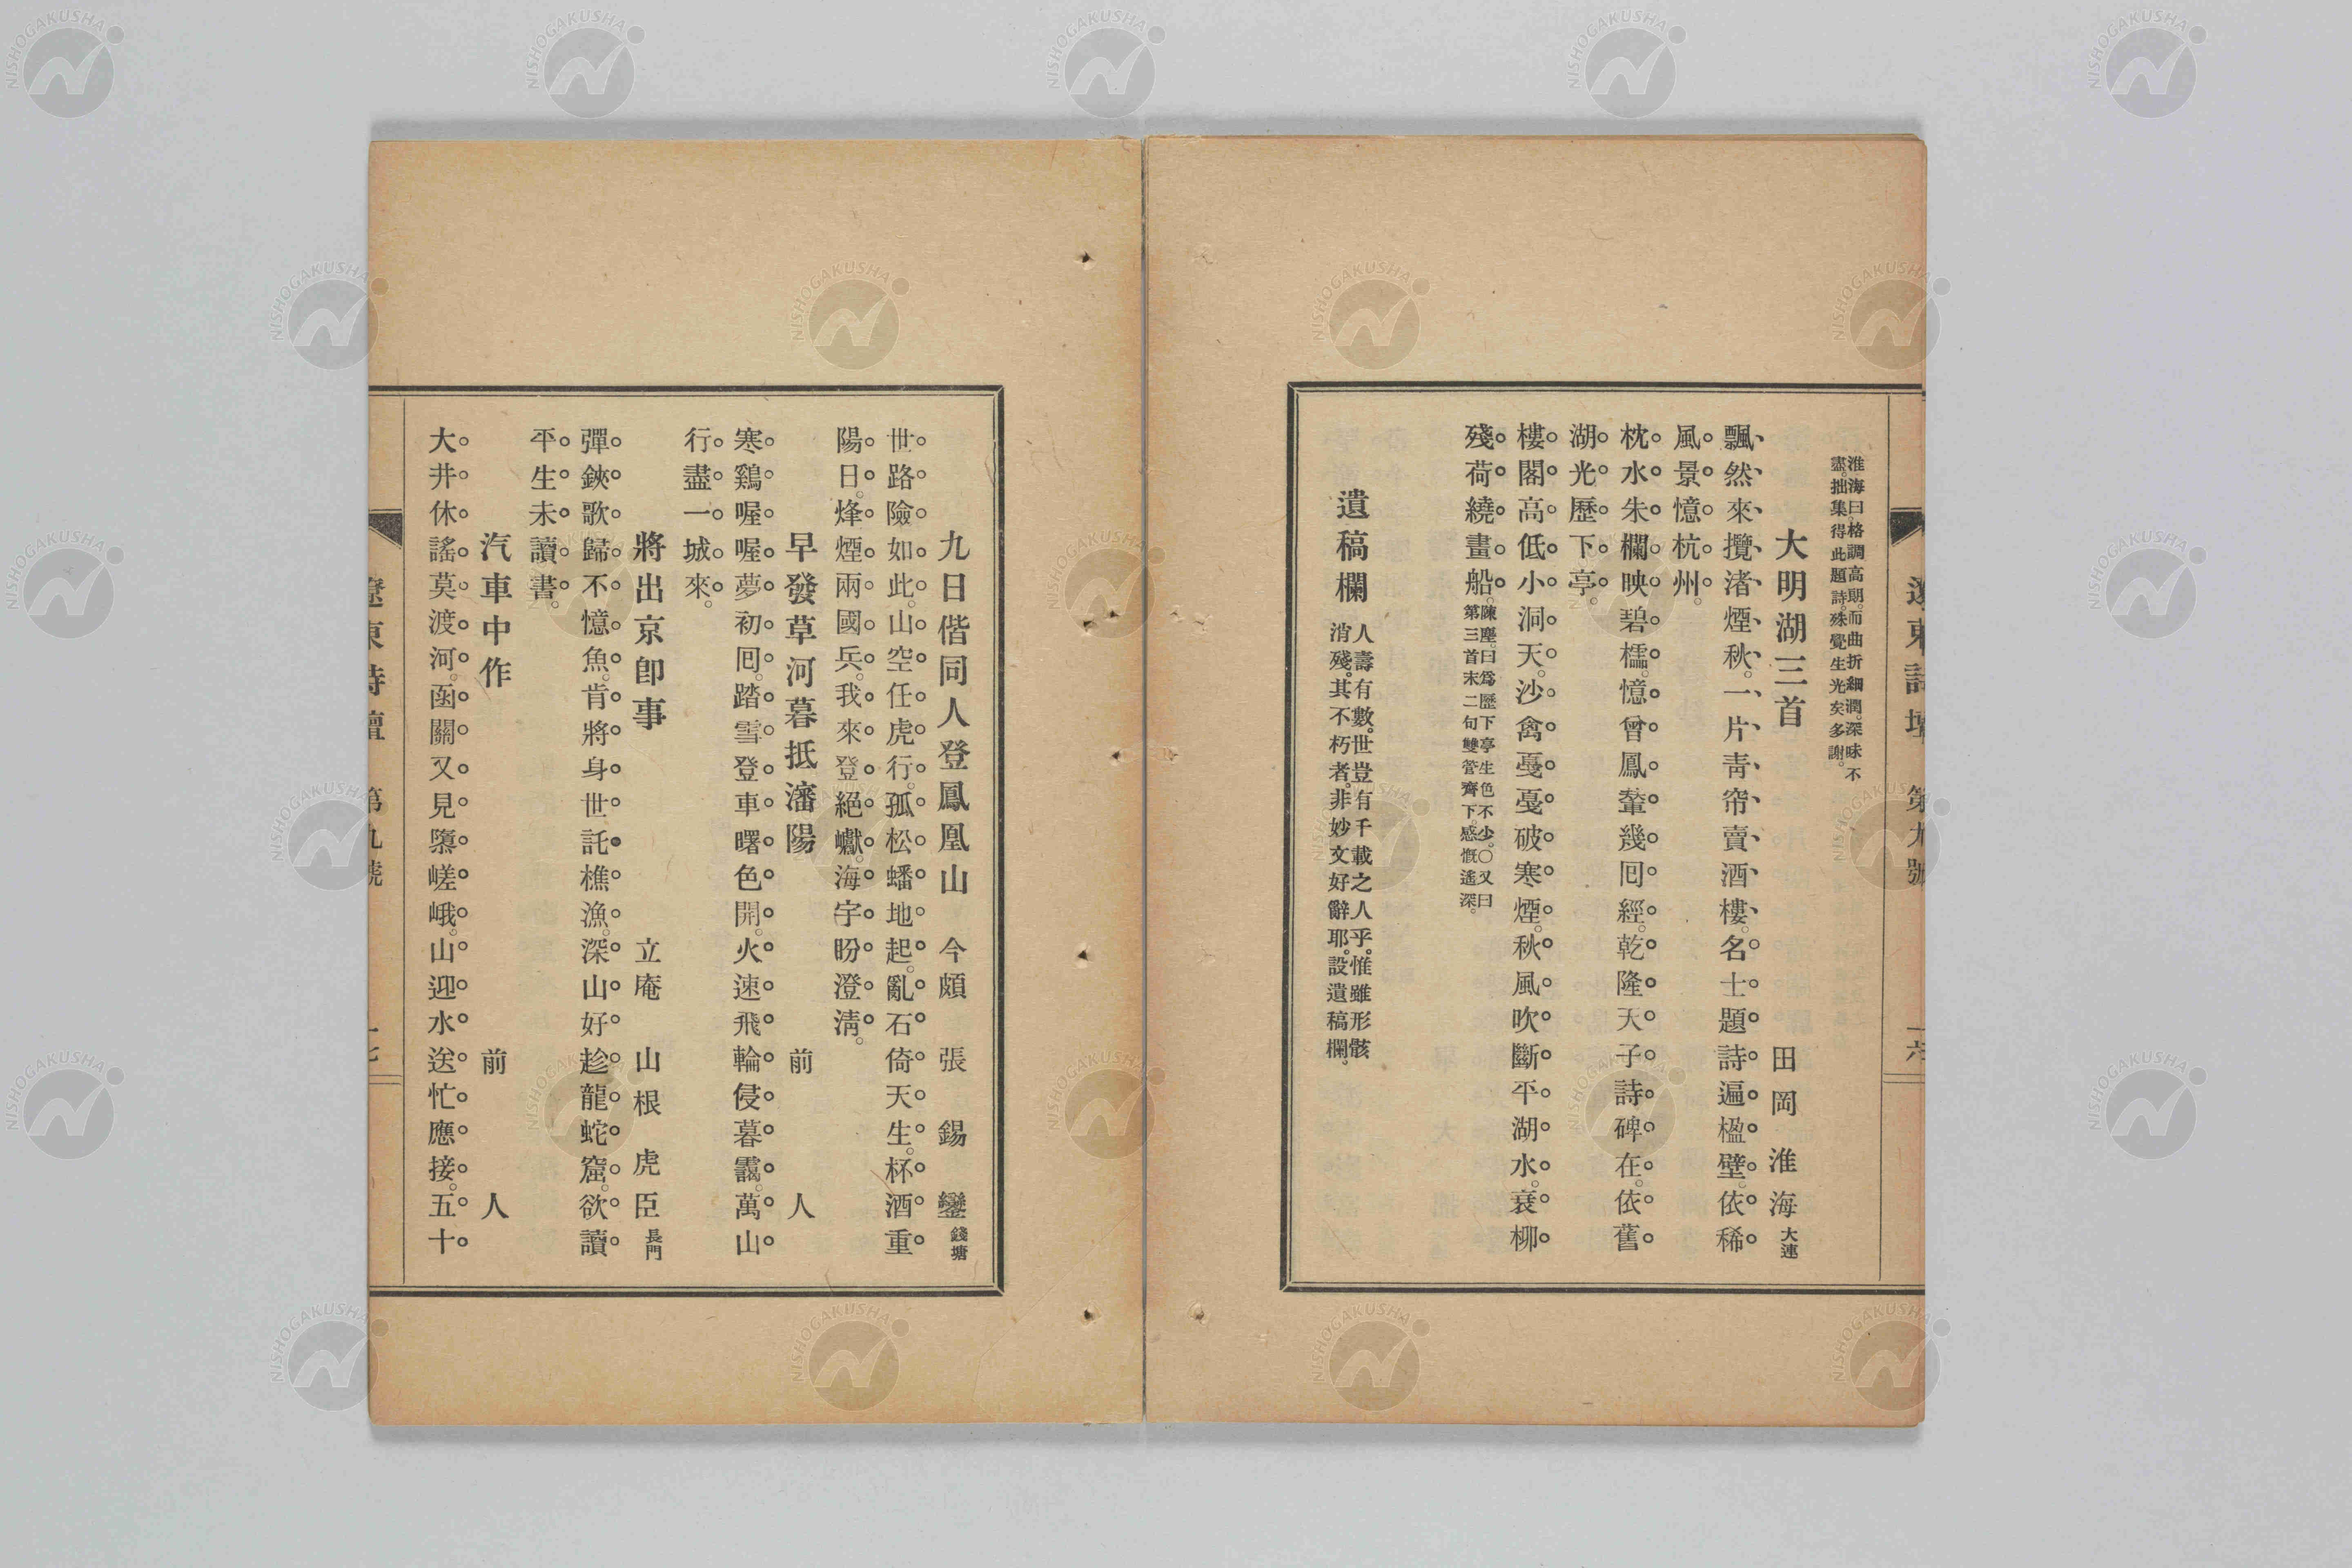 遼東詩壇 第九號 一六
淮海曰。格調高朗。而曲折細潤。深味不
盡。拙集得此題詩。殊覺生光矣多謝。
大明湖三首 田岡淮海 大連
飄然來攬渚煙秋。一片靑帘賣酒樓。名士題詩遍楹壁。依稀
風景憶杭州。
枕水朱欄映碧檽。憶曾鳳輦幾回經。乾隆天子詩碑在。依舊
湖光歷下亭。
樓閣高低小洞天。沙禽戞戞破寒煙。秋風吹斷平湖水。衰柳
殘荷繞畫船。
陳塵曰。爲歷下亭生色不少。〇又曰
第三首末二句雙管齊下。感慨遙深。
遺稿欄
人壽有數。世豈有千載之人乎。惟雖形骸
消殘。其不朽者。非妙文好辭耶。設遺稿欄。
九日偕同人登鳳凰山 今頗 張錫鑾 錢塘
世路險如此。山空任虎行。孤松蟠地起。亂石倚天生。杯酒重
陽日。烽煙兩國兵。我來登絕巘。海宇盼澄淸。
早發草河暮抵瀋陽 前人
寒鷄喔喔夢初回。踏雪登車曙色開。火速飛輪侵暮靄。萬山
行盡一城來。
將出京卽事 立庵 山根虎臣 長門
彈鋏歌歸不憶魚。肯將身世託樵漁。深山好趁龍蛇窟。欲讀
平生未讀書。
汽車中作 前人
大井休謠莫渡河。函關又見隳嵯峨。山迎水送忙應接。五十
遼東詩壇 第九號 一七
NISHOGAKUSHA